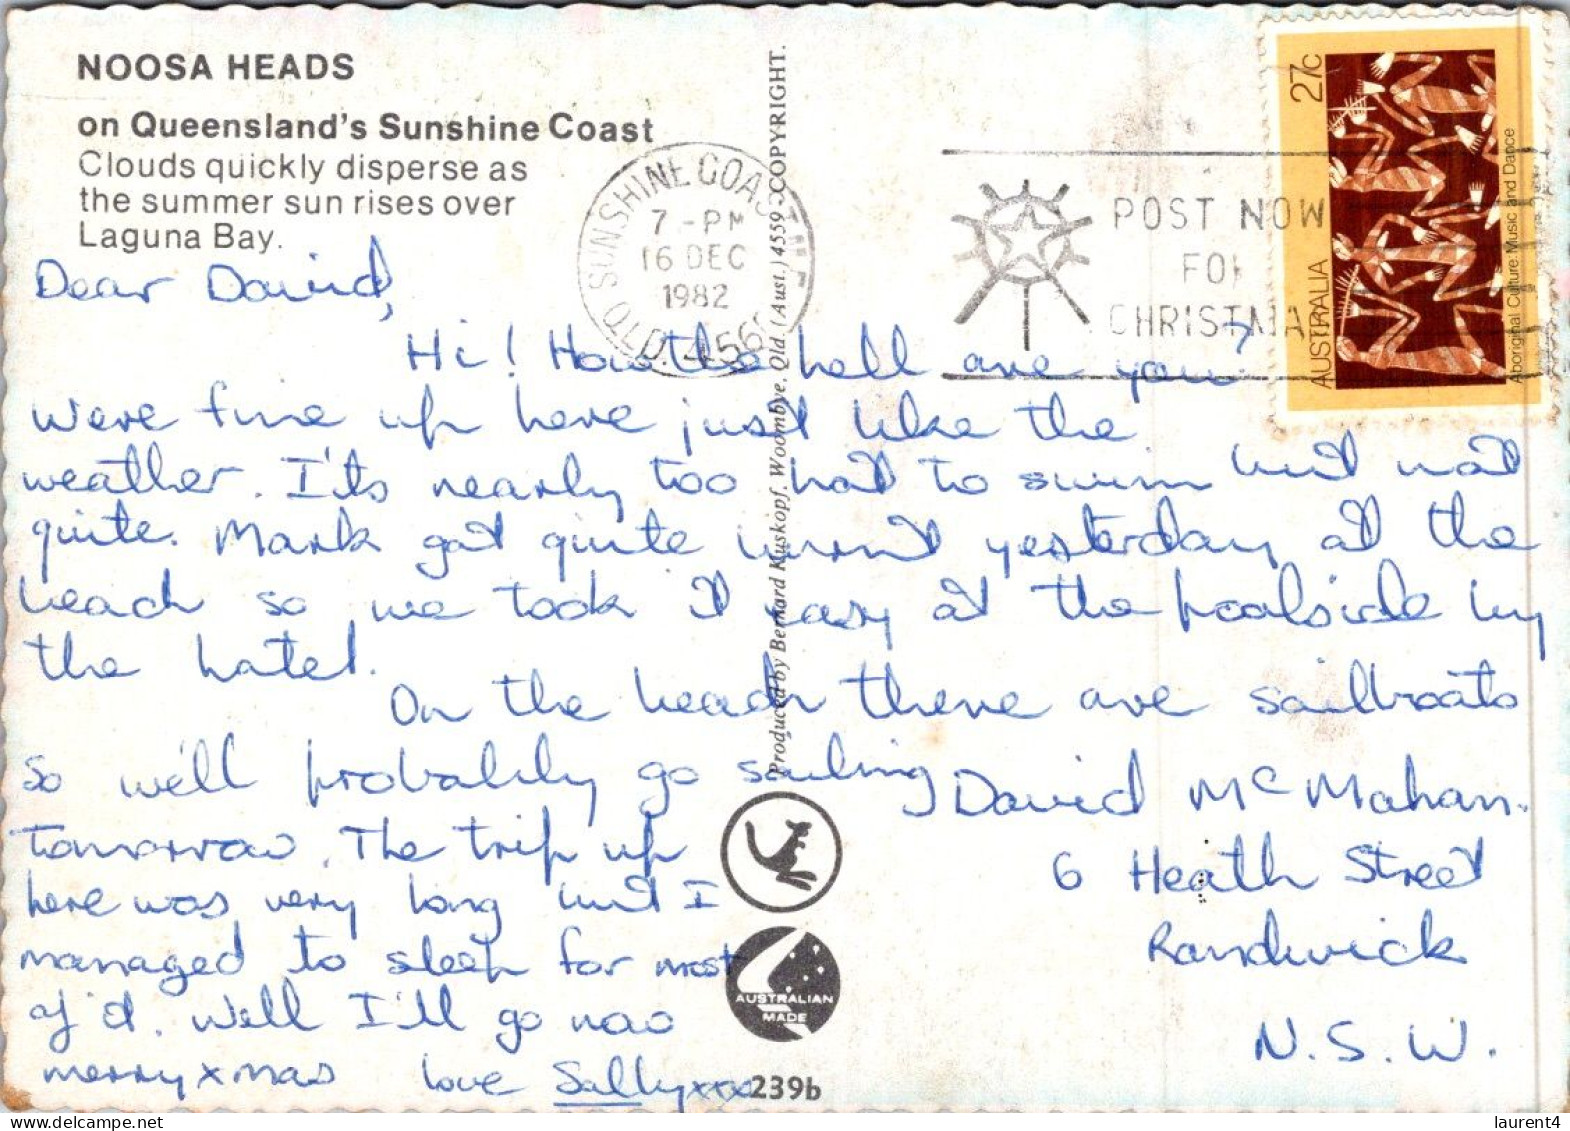 NOOSA HEADS
on Queensland's Sunshine Coast
Clouds quickly disperse as
the summer sun rises over
Laguna Bay.
SUNSHINE COAST
7 - PM
16 DEC
1982
QLD. 456
POST NOW
FOR
CHRISTMA
27c
AUSTRALIA
Aboriginal Culture: Music and Dance
Produced by Bernard Kuskopf, Woombye, Qld. (Aust.) 4559 COPYRIGHT.
Dear David,
Hi! How the hell are you?
Were fine up here just like the
weather. It's nearly too hot to swim but not
quite. Mark got quite burnt yesterday at the
beach so we took it easy at the poolside by
the hotel.
On the beach there are sailboats
so we'll probably go sailing
tomorrow. The trip up
here was very long but I
managed to sleep for most
of it. Well I'll go now
merry xmas love Sally xxx
David McMahan.
6 Heath Street
Randwick
N.S.W.
AUSTRALIAN
MADE
239b
laurent4